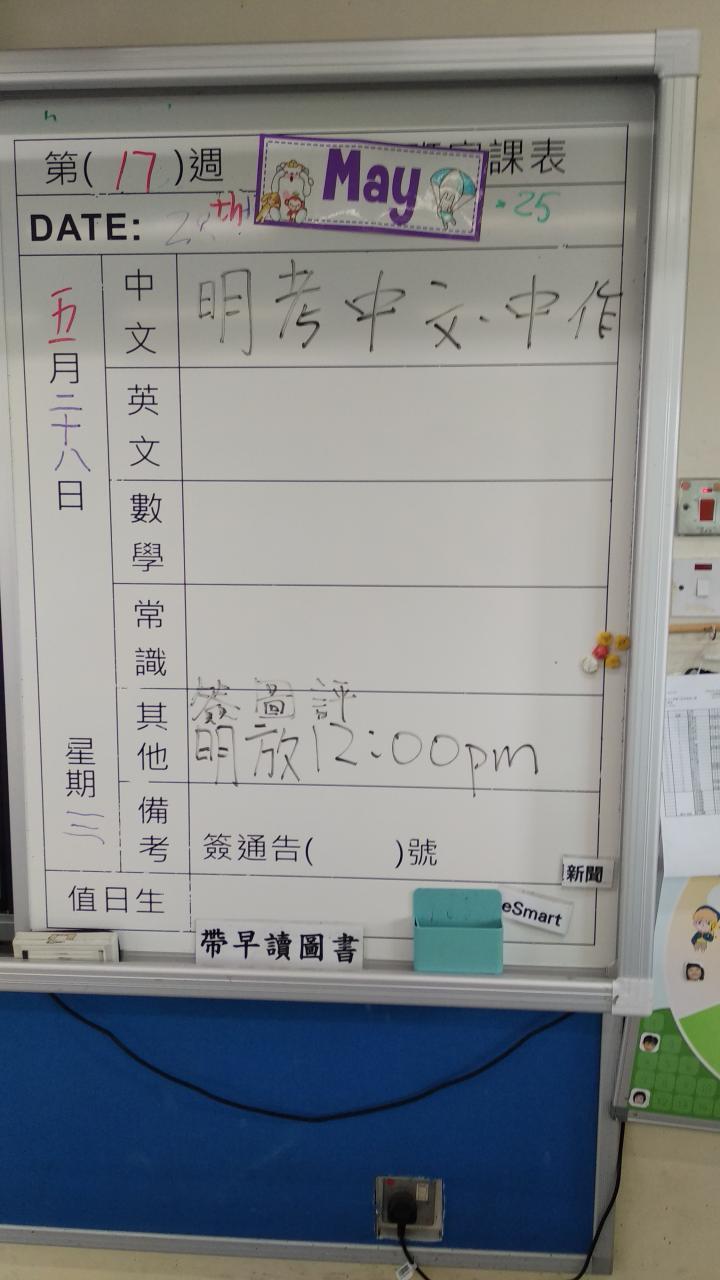 第(17)週 課表
May
DATE: 28th .25
五月二十八日 星期三
中文 明考中文、中作
英文
數學
常識
其他 簽圖評
明放12:00pm
備考 簽通告( )號
新聞
值日生
eSmart
帶早讀圖書